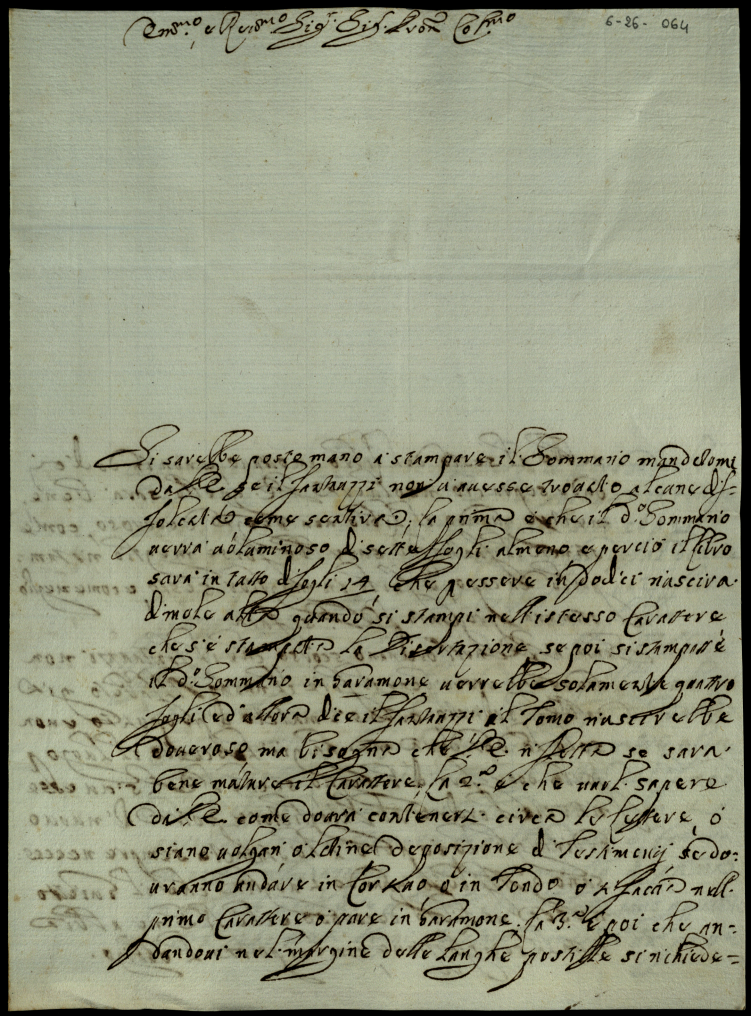 Em.mo e Rev.mo Sig.r Sig.r Pron Col.mo
6-26- 064
Si sarebbe posto mano a stampare il Sommario mandatomi
da VE se il Fantuzzi non vi avesse trovato alcune dif=
folcatà come sentirà; la prima è che il d.o Sommario
verrà voluminoso di sette fogli almeno e perciò il libro
sarà in tutto di fogli 14 che p essere in dodici riuscirà
di mole alta quando si stampi nell'istesso Carattere
che s'è stampata la Disertazione, se poi si stampasse
il d.o Sommario in Garamone verrebbe solamente quattro
fogli ed allora dice il Fantuzzi il Tomo riuscirebbe
doveroso ma bisogna che VE rifletta se sarà
bene mutare il Carattere, la 2.a è che vuol sapere
da VE come dovrà contenersi circa le lettere, o
siano volgari o latine deposizione di Testimonij se do=
vranno andare in Corsivo o in Tondo o farà nell
primo Carattere o pure in Garamone. la 3.a è poi che an=
dandovi nel margine delle lunghe postille si richiede=